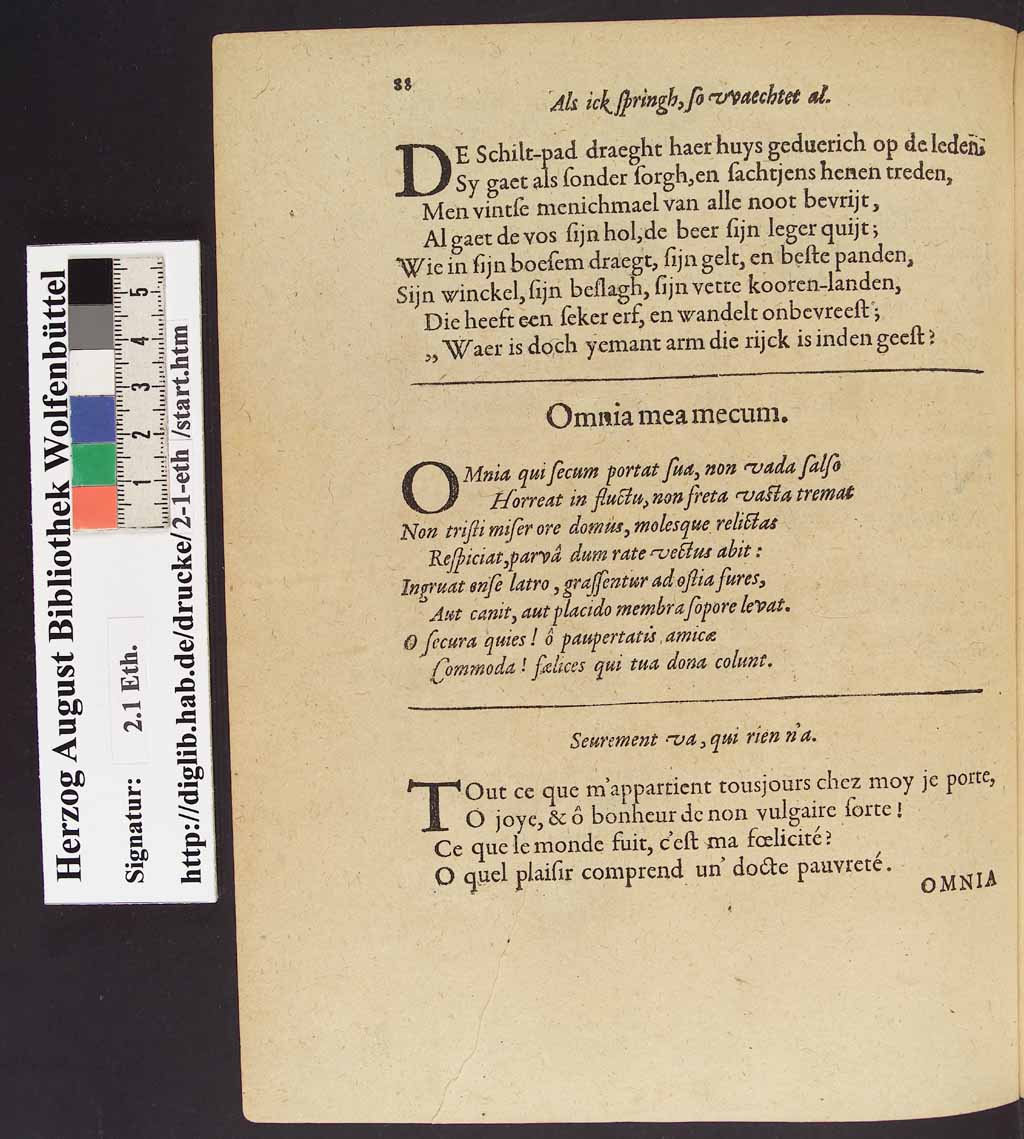 88
Als ick ſpringh, ſo vvaechtet al.
DE Schilt-pad draeght haer huys geduerich op de leden
Sy gaet als ſonder ſorgh, en ſachtjens henen treden,
Men vintſe menichmael van alle noot bevrijt,
Al gaet de vos ſijn hol, de beer ſijn leger quijt;
Wie in ſijn boeſem draegt, ſijn gelt, en beſte panden,
Sijn winckel, ſijn beſlagh, ſijn vette kooren-landen,
Die heeft een ſeker erf, en wandelt onbevreeſt;
„ Waer is doch yemant arm die rijck is inden geeſt?
Omnia mea mecum.
OMnia qui ſecum portat ſua, non vada ſalſo
Horreat in fluctu, non freta vaſta tremat
Non triſti miſer ore domûs, molesque relictas
Reſpiciat, parvâ dum rate vectus abit:
Ingruat enſe latro, graſſentur ad oſtia fures,
Aut canit, aut placido membra ſopore levat.
O ſecura quies! ô paupertatis amicæ
Commoda! fælices qui tua dona colunt.
Seurement va, qui rien n'a.
TOut ce que m'appartient tousjours chez moy je porte,
O joye, & ô bonheur de non vulgaire ſorte!
Ce que le monde fuit, c'eſt ma fœlicité?
O quel plaiſir comprend un' docte pauvreté.
OMNIA
Herzog August Bibliothek Wolfenbüttel
Signatur: 2.1 Eth.
http://diglib.hab.de/drucke/2-1-eth /start.htm
1 2 3 4 5